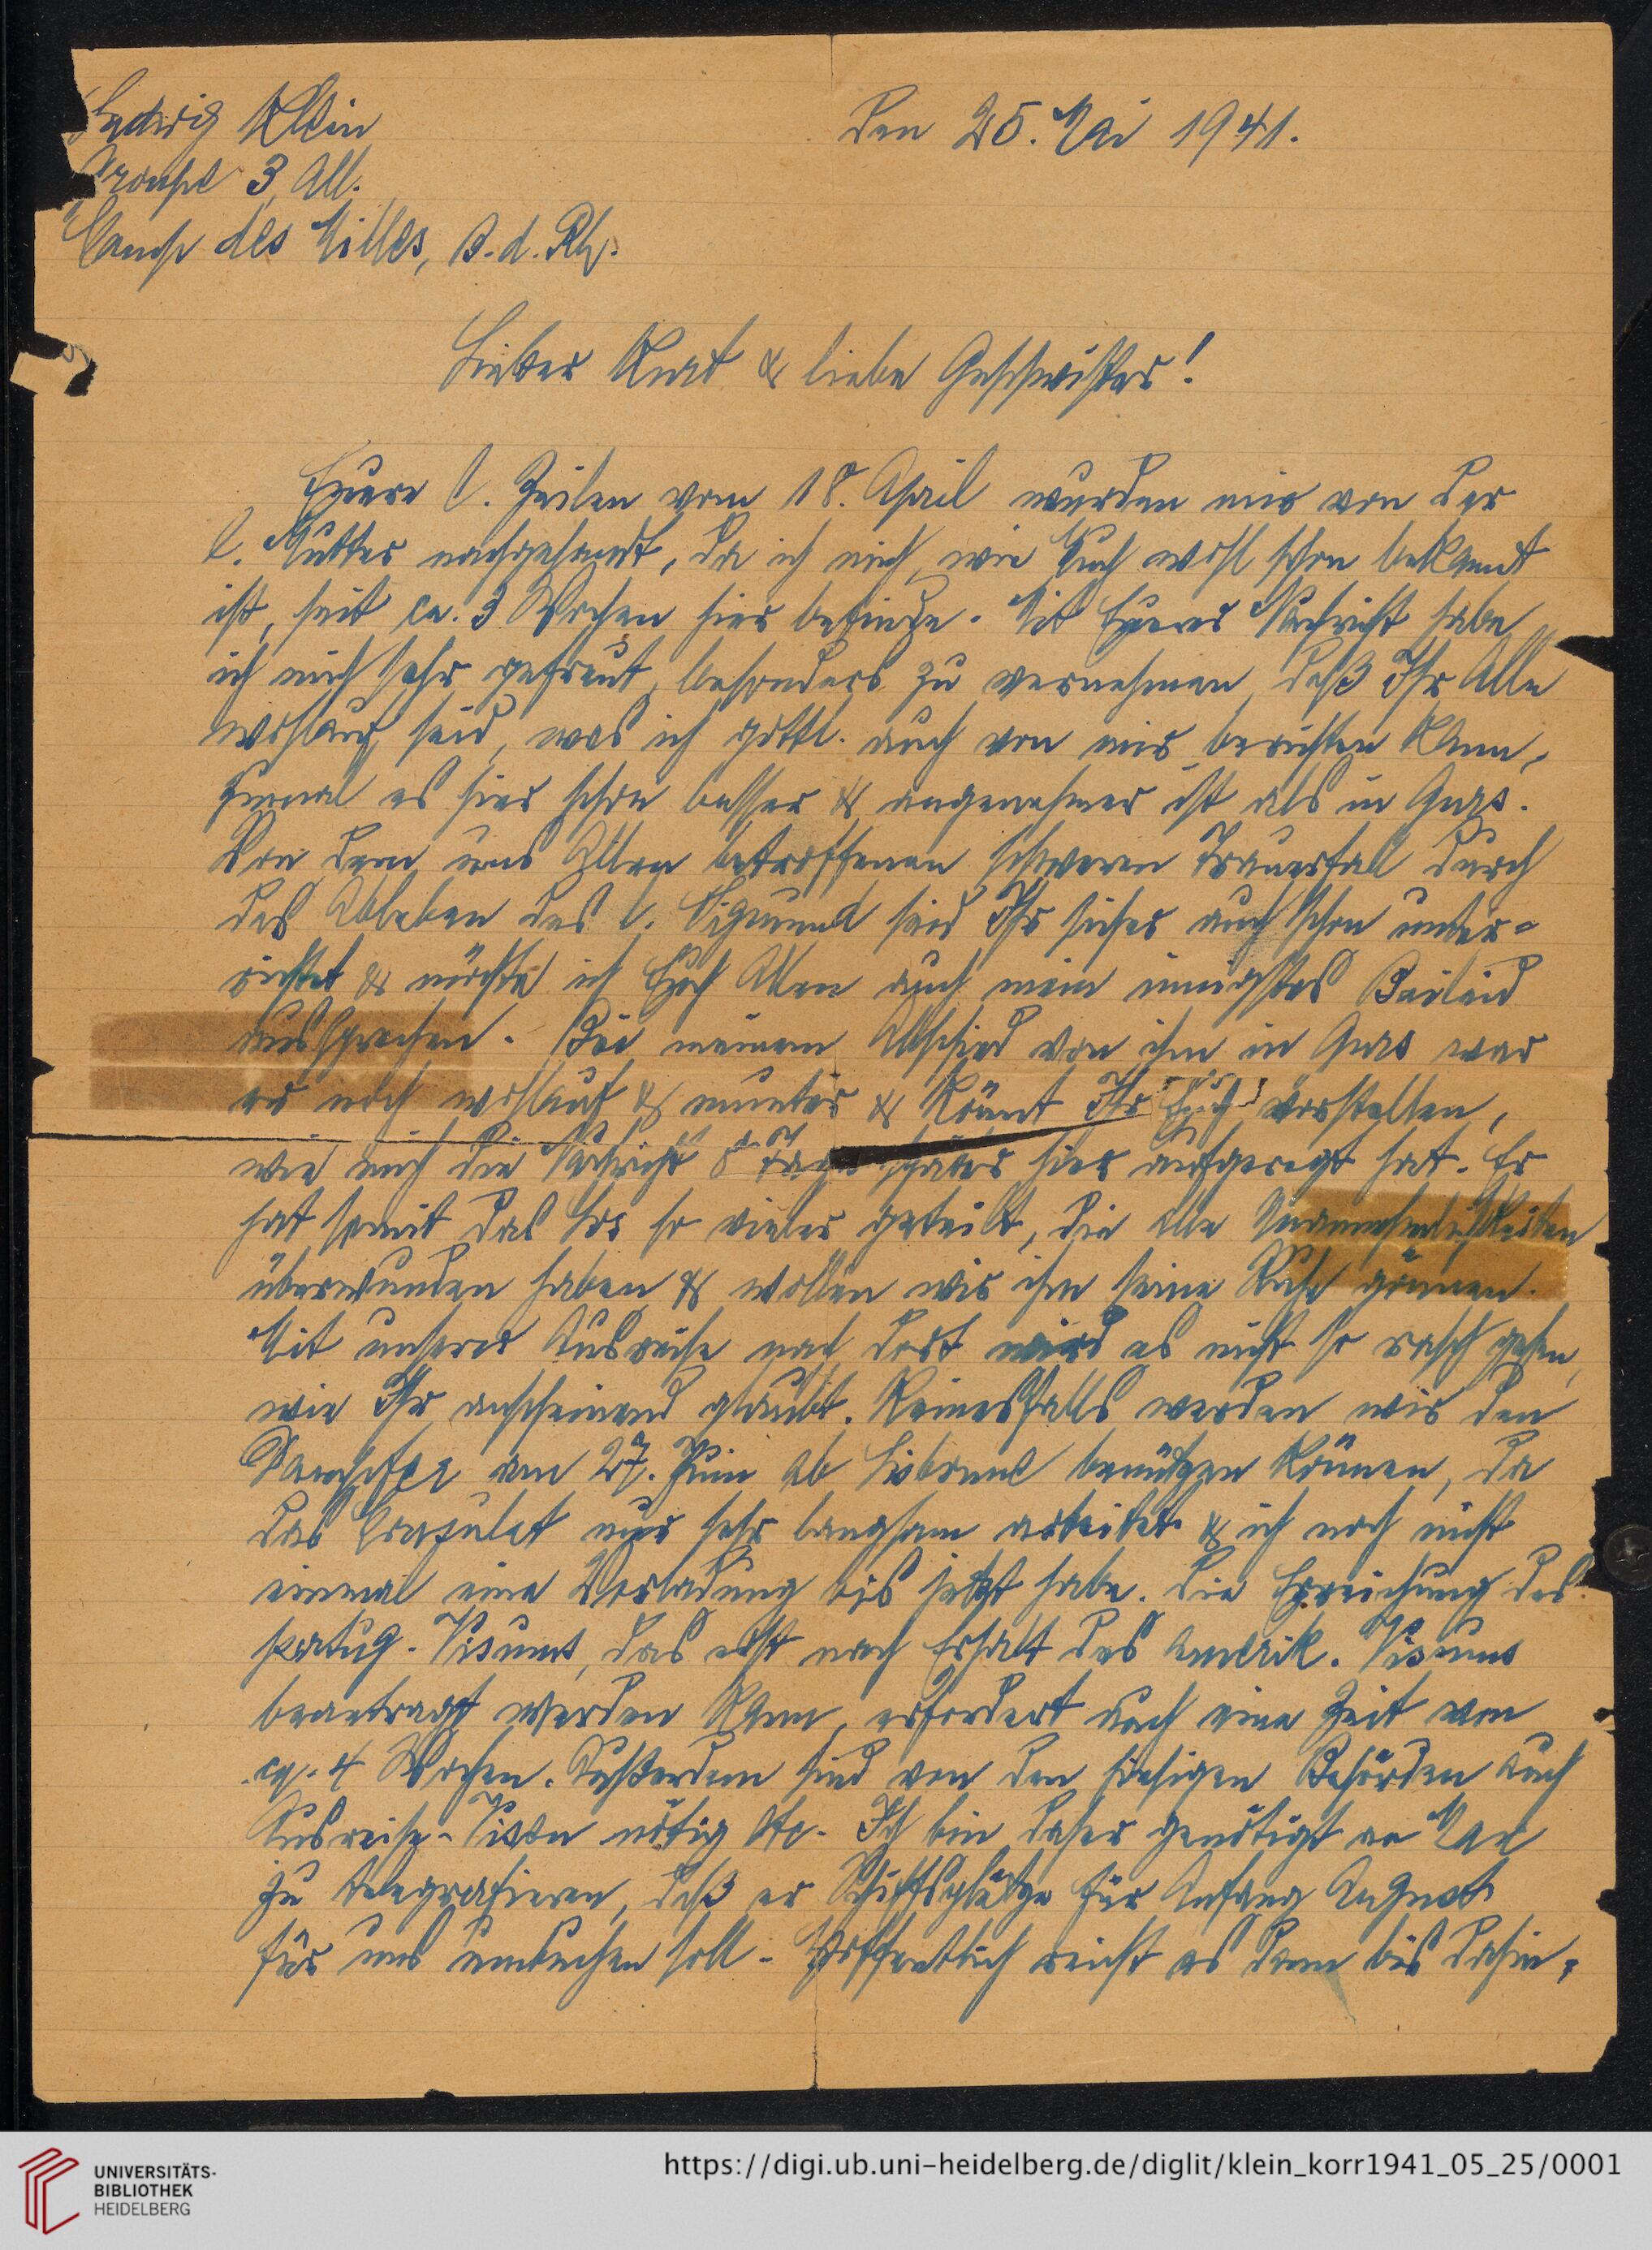 Ludwig Klein
Groupe 3, All.
Camp des Milles, B.d.Rh.
Den 25. Mai 1941.
Lieber Kurt & liebe Geschwister!
Euere l. Zeilen vom 18. April wurden mir von der
l. Mutter nachgesandt, da ich mich, wie Euch wohl schon bekannt
ist, seit ca. 3 Wochen hier befinde. Mit Euerer Nachricht habe
ich mich sehr gefreut, besonders zu vernehmen, daß Ihr Alle
wohlauf seid, was ich gottl. auch von mir berichten kann,
zumal es hier schon besser & angenehmer ist als in Gurs.
Von dem uns Allen betroffenen schweren Trauerfall durch
das Ableben des l. Sigmund seid Ihr sicher auch schon unter-
richtet & möchte ich Euch Allen auch mein innigstes Beileid
aussprechen. Bei meinem Abschied von ihm in Gurs war
er noch wohlauf & munter & könnt Ihr Euch vorstellen,
wie mich die Nachricht 8 Tage später hier aufgeregt hat. Er
hat somit das Los so vieler geteilt, die alle Unannehmlichkeiten
überwunden haben & wollen wir ihm seine Ruhe gönnen.
Mit unserer Ausreise nach dort wird es nicht so rasch gehen,
wie Ihr anscheinend glaubt. Keinesfalls werden wir den
Dampfer am 27. Juni ab Lissabon benützen können, da
das Consulat nur sehr langsam arbeitet & ich noch nicht
einmal eine Vorladung bis jetzt habe. Die Erreichung des
portug. Visums, das erst nach Erhalt des amerik. Visums
beantragt werden kann, erfordert auch eine Zeit von
ca. 4 Wochen. Außerdem sind von den hiesigen Behörden auch
Ausreise-Visen nötig etc. Ich bin daher genötigt an Max
zu telegrafieren, daß er Schiffsplätze für Anfang August
für uns umbuchen soll. Hoffentlich reicht es dann bis dahin,
UNIVERSITÄTS-
BIBLIOTHEK
HEIDELBERG
https://digi.ub.uni-heidelberg.de/diglit/klein_korr1941_05_25/0001